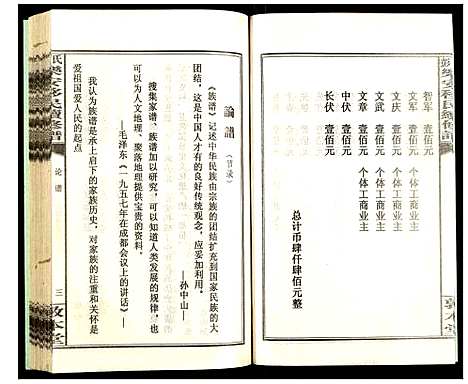 智军 壹佰元
文军 壹佰元 个体工商业主
文庆 壹佰元 个体工商业主
文武 壹佰元 个体工商业主
文章 壹佰元 个体工商业主
中伏 壹佰元
长伏 壹佰元
总计币肆仟肆佰元整
敦本堂
论谱（节录）
《族谱》记述中华民族由宗族的团结扩充到国家民族的大
团结，这是中国人才有的良好传统观念，应妥加利用。
——孙中山——
搜集家谱、族谱加以研究，可以知道人类发展的规律，也
可以为人文地理、聚落地理提供宝贵的资料。
——毛泽东《一九五七年在成都会议上的讲话》——
我认为族谱是承上启下的家族历史，对家族的注重和关怀是
爱祖国爱人民的起点
论谱
三
敦本堂